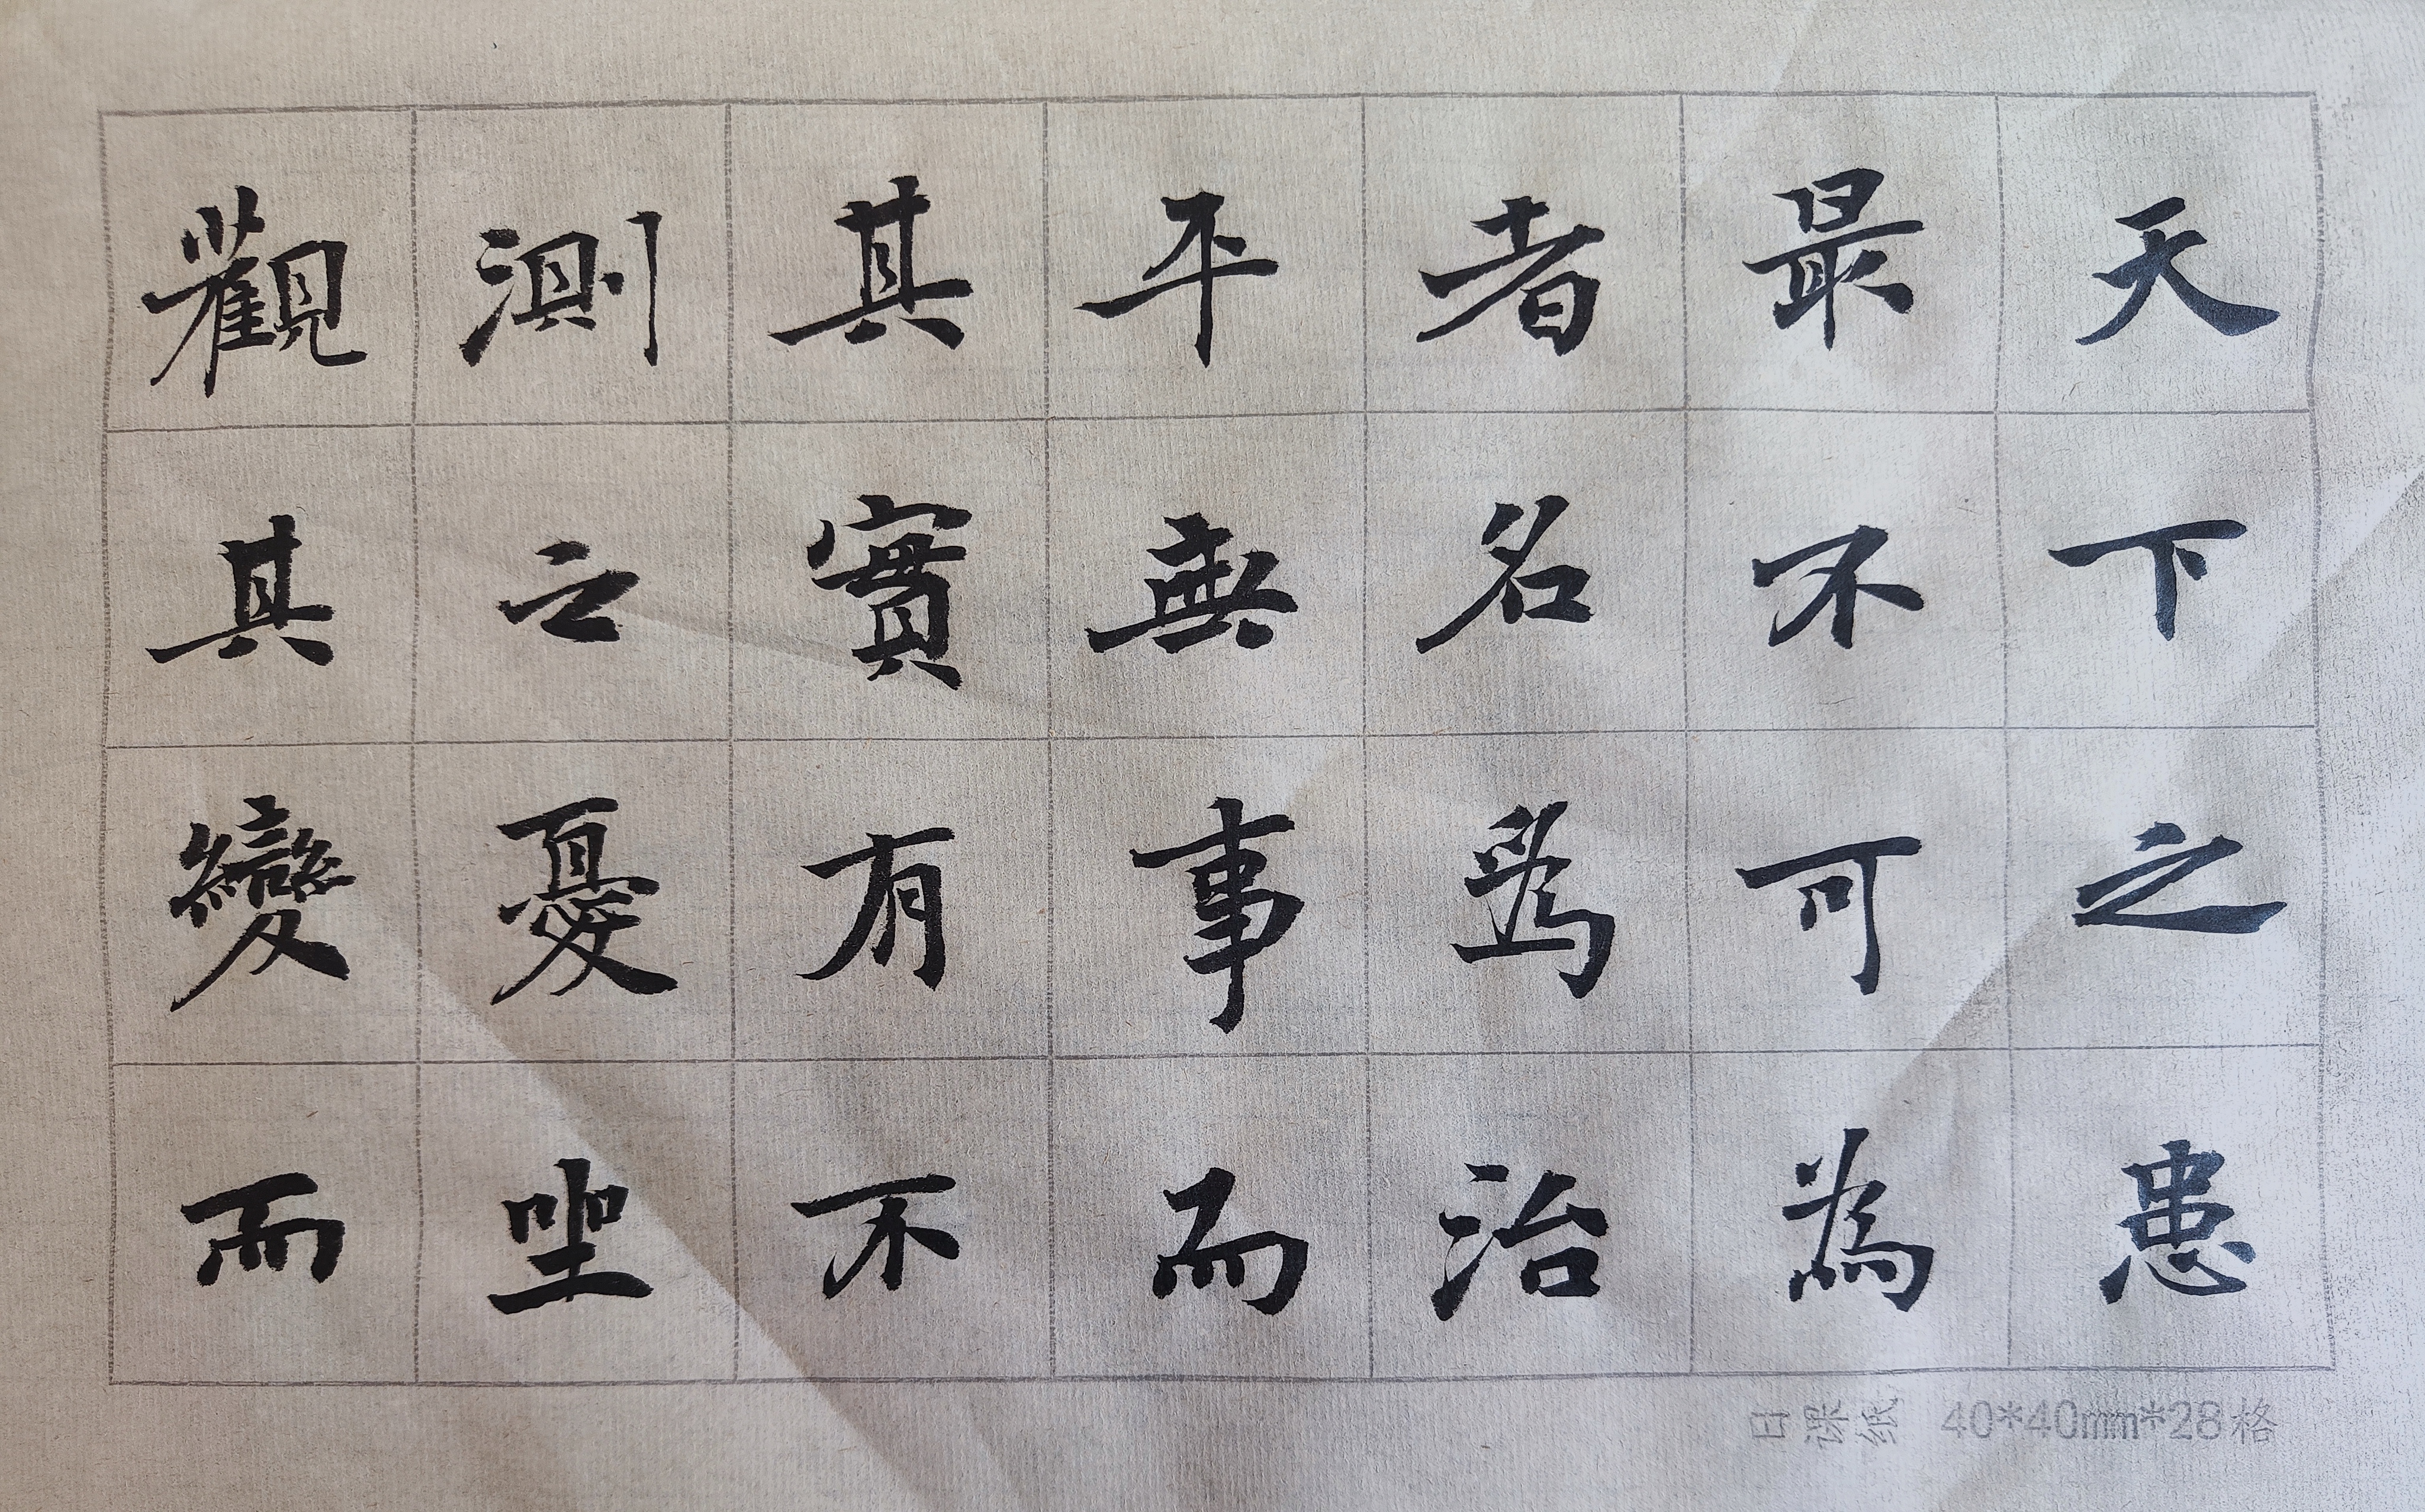 天下之患
最不可為
者名爲治
平無事而
其實有不
測之憂坐
觀其變而
日课纸 40*40mm*28格